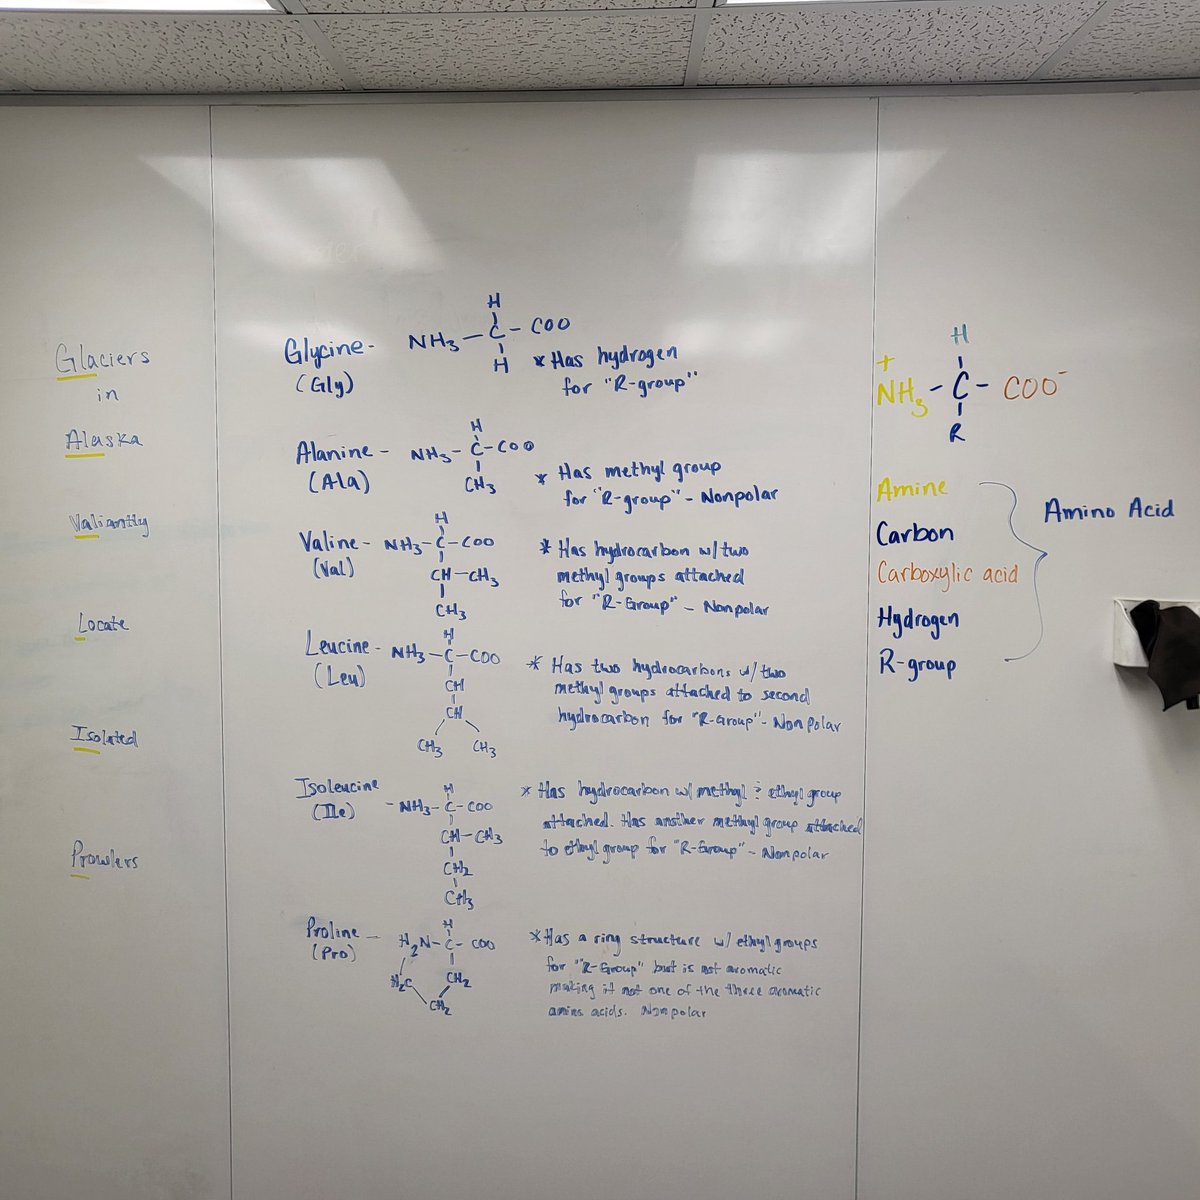 Glaciers
in
Alaska
Valiantly
Locate
Isolated
Prowlers
H
Glycine - NH3 - C - COO
(Gly)
H
* Has hydrogen
for "R-group"
H
Alanine - NH3 - C - COO
(Ala)
CH3
* Has methyl group
for "R-group" - Nonpolar
H
Valine - NH3 - C - COO
(Val)
CH - CH3
CH3
* Has hydrocarbon w/ two
methyl groups attached
for "R-Group" - Nonpolar
H
Leucine - NH3 - C - COO
(Leu)
CH
CH
CH3 CH3
* Has two hydrocarbons w/ two
methyl groups attached to second
hydrocarbon for "R-Group" - Nonpolar
H
Isoleucine - NH3 - C - COO
(Ile)
CH - CH3
CH2
CH3
* Has hydrocarbon w/ methyl & ethyl group
attached. Has another methyl group attached
to ethyl group for "R-Group" - Nonpolar
H
Proline - H2N - C - COO
(Pro)
H2C CH2
CH2
* Has a ring structure w/ ethyl groups
for "R-Group" but is not aromatic
making it not one of the three aromatic
amino acids. Nonpolar
H
+
NH3 - C - COO-
R
Amine
Carbon
Carboxylic acid
Hydrogen
R-group
Amino Acid